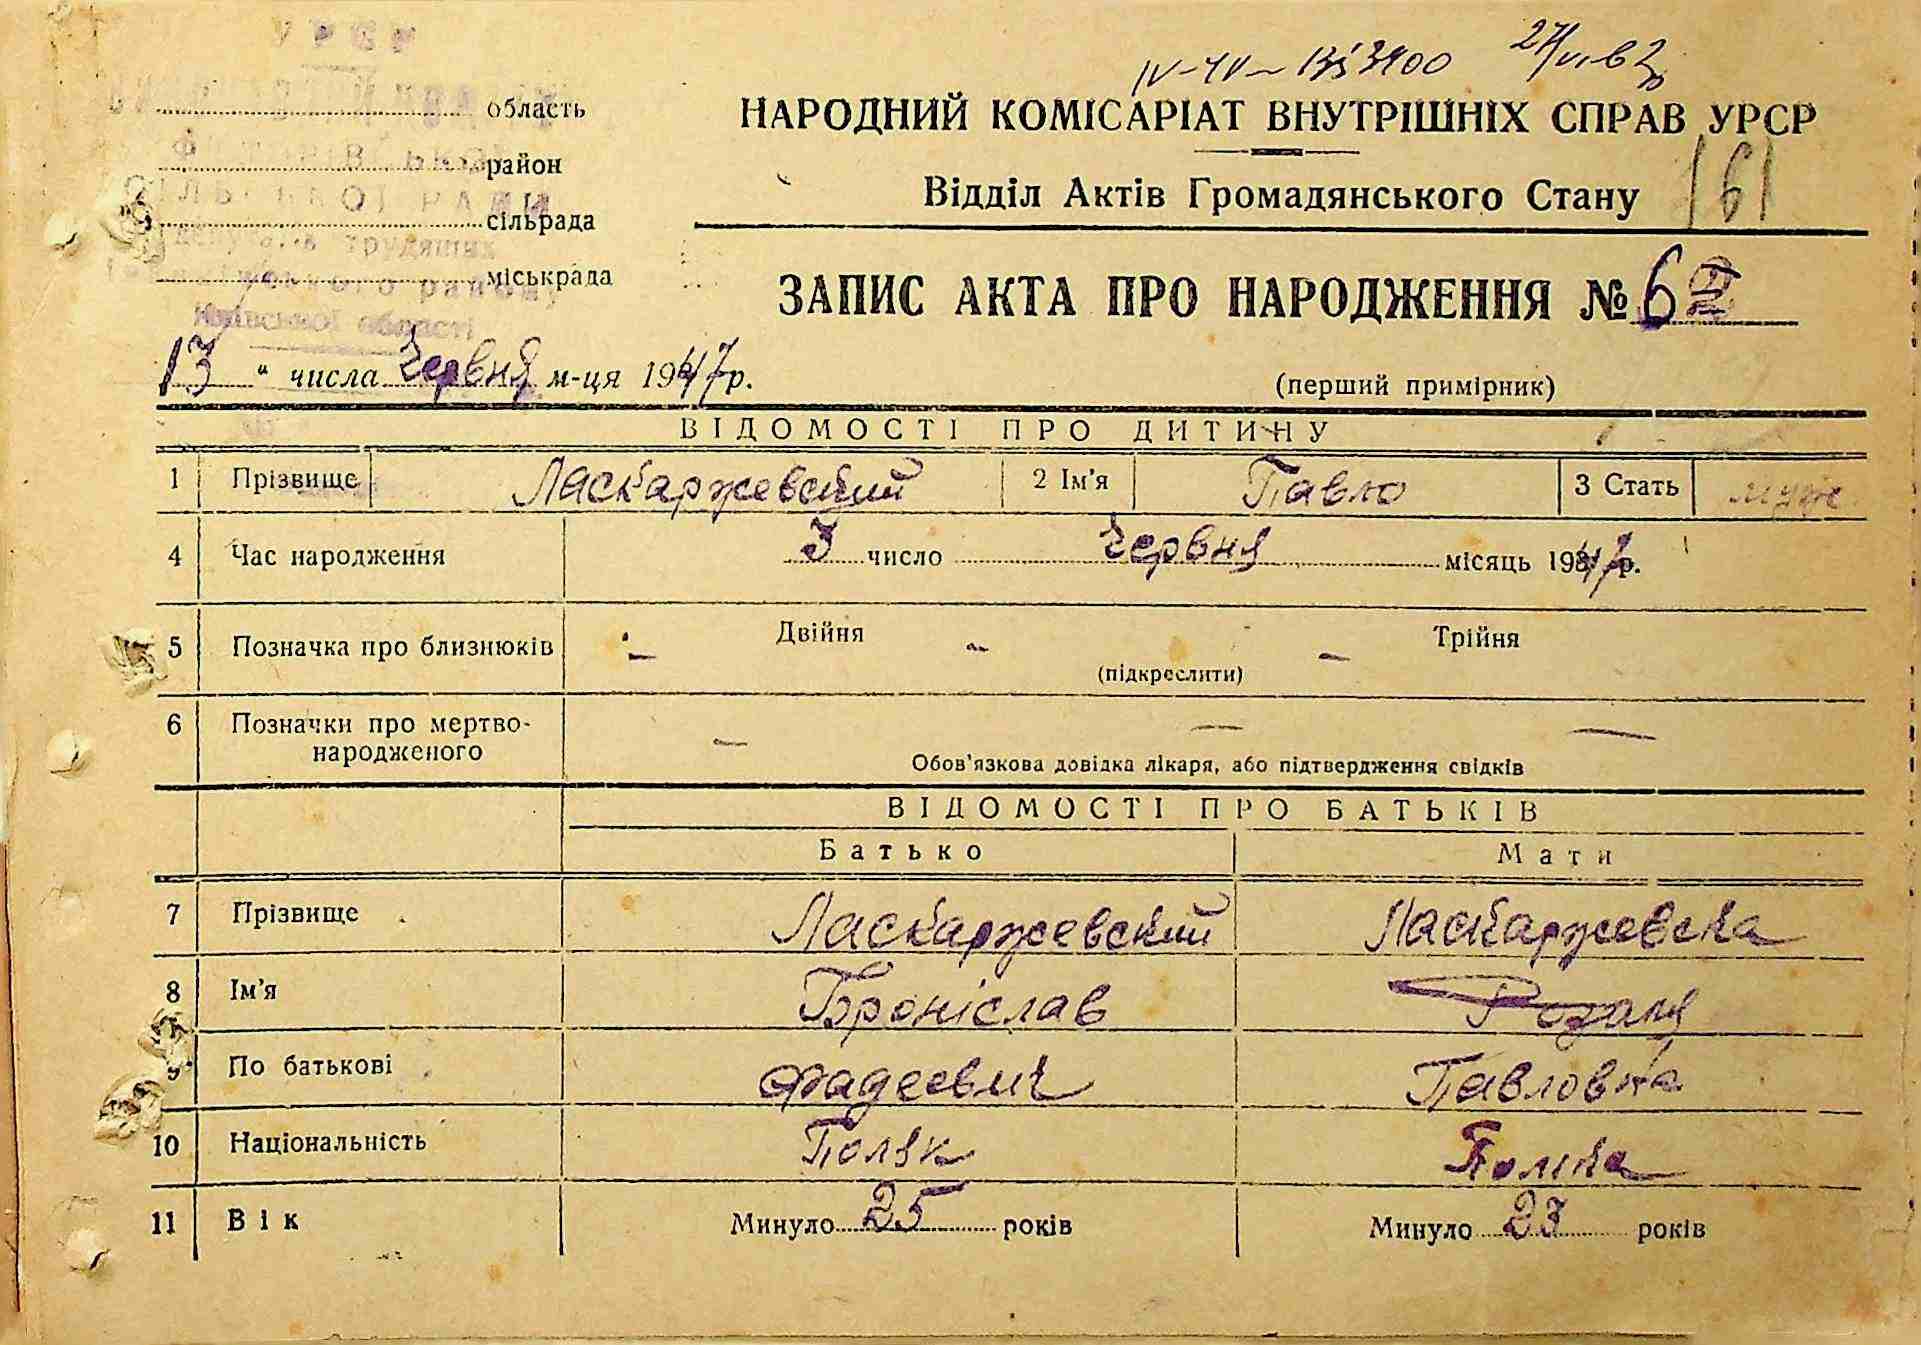 УРСР
область
НАРОДНИЙ КОМІСАРІАТ ВНУТРІШНІХ СПРАВ УРСР
район
Відділ Актів Громадянського Стану 161
СІЛЬСЬКОЇ РАДИ
сільрада
трудящих
міськрада
району
ЗАПИС АКТА ПРО НАРОДЖЕННЯ № 6
Київської області
13 " числа Червня м-ця 1947 р.
(перший примірник)
ВІДОМОСТІ ПРО ДИТИНУ
1 Прізвище Ласкаржевский 2 Ім'я Павло 3 Стать муж
4 Час народження 3 число Червня місяць 1947 р.
5 Позначка про близнюків - Двійня - - Трійня
(підкреслити)
6 Позначки про мертво- — — —
народженого
Обов'язкова довідка лікаря, або підтвердження свідків
ВІДОМОСТІ ПРО БАТЬКІВ
Батько Мати
7 Прізвище Ласкаржевский Ласкаржевска
8 Ім'я Броніслав Розалія
9 По батькові Фадеевич Павловна
10 Національність Поляк Полька
11 Вік Минуло 25 років Минуло 23 років